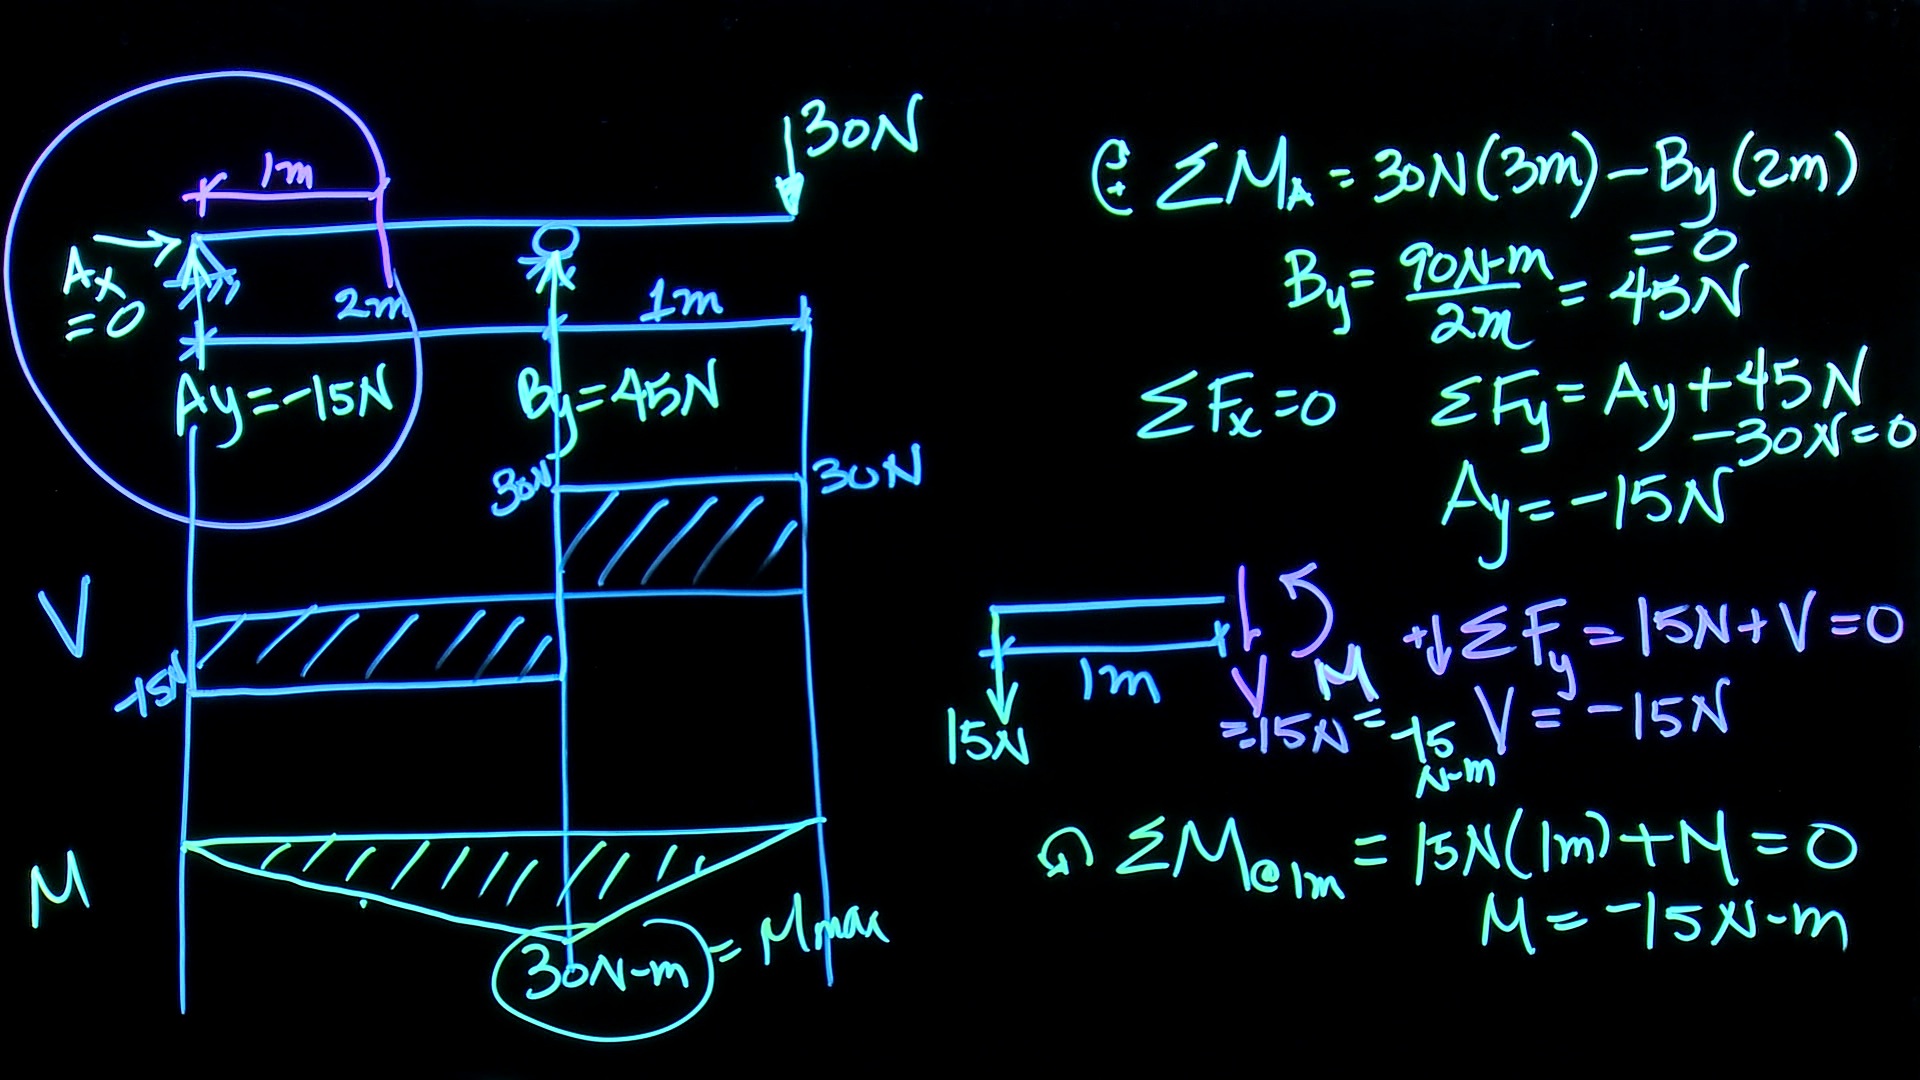 30N
1m
Ax
=0
2m
1m
Ay=-15N
By=45N
30N
30N
V
-15N
M
30N-m = Mmax
+ ΣMA = 30N(3m) - By(2m)
= 0
By = 90N-m/2m = 45N
ΣFx = 0
ΣFy = Ay + 45N
-30N = 0
Ay = -15N
1m
15N
V
=-15N
M
= -15
N-m
+↓ΣFy = 15N + V = 0
V = -15N
ΣM@1m = 15N(1m) + M = 0
M = -15N-m